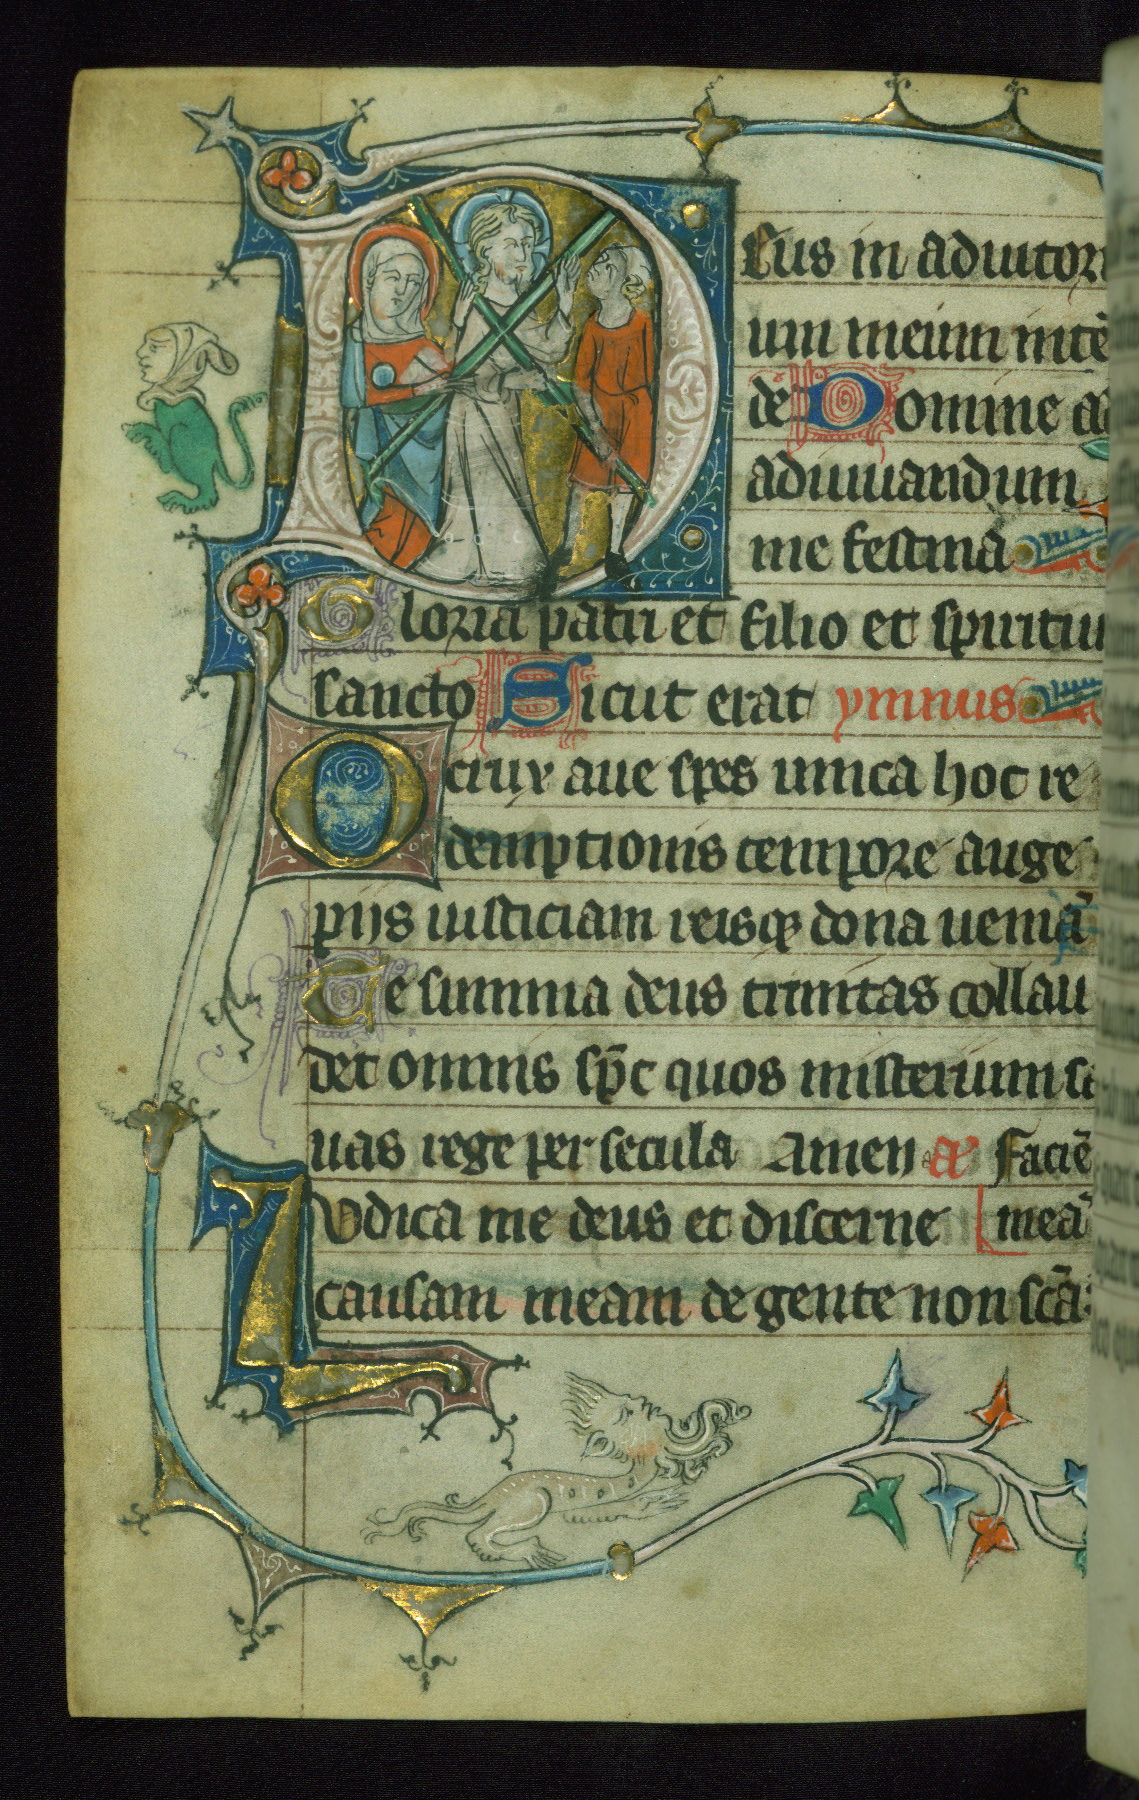 Deus in adiutori
um meum intē
de Domine ad
adiuuandum
me festina
Gloria patri et filio et spiritui
sancto Sicut erat ymnus
O crux aue spes unica hoc re
demptionis tempore auge
pijs iusticiam reisqꝫ dona ueniā
Te summa deus trinitas collau
det omnis sp̄c quos misterium sa
uas rege per secula Amen a Faciē
Iudica me deus et discerne meā
causam meam de gente non scā: